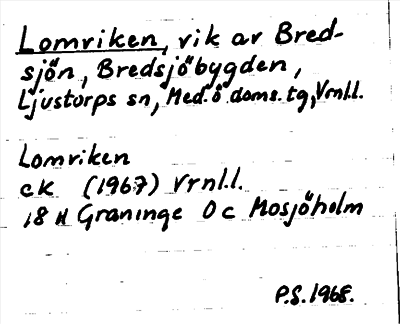 Lomviken, vik av Bred-
sjön, Bredsjöbygden,
Ljustorps sn, Med. ö. doms. tg, Vrnl.l.
Lomviken
ek (1967) Vrnl.l.
18 H Graninge 0 c Mosjöholm
P.S. 1968.